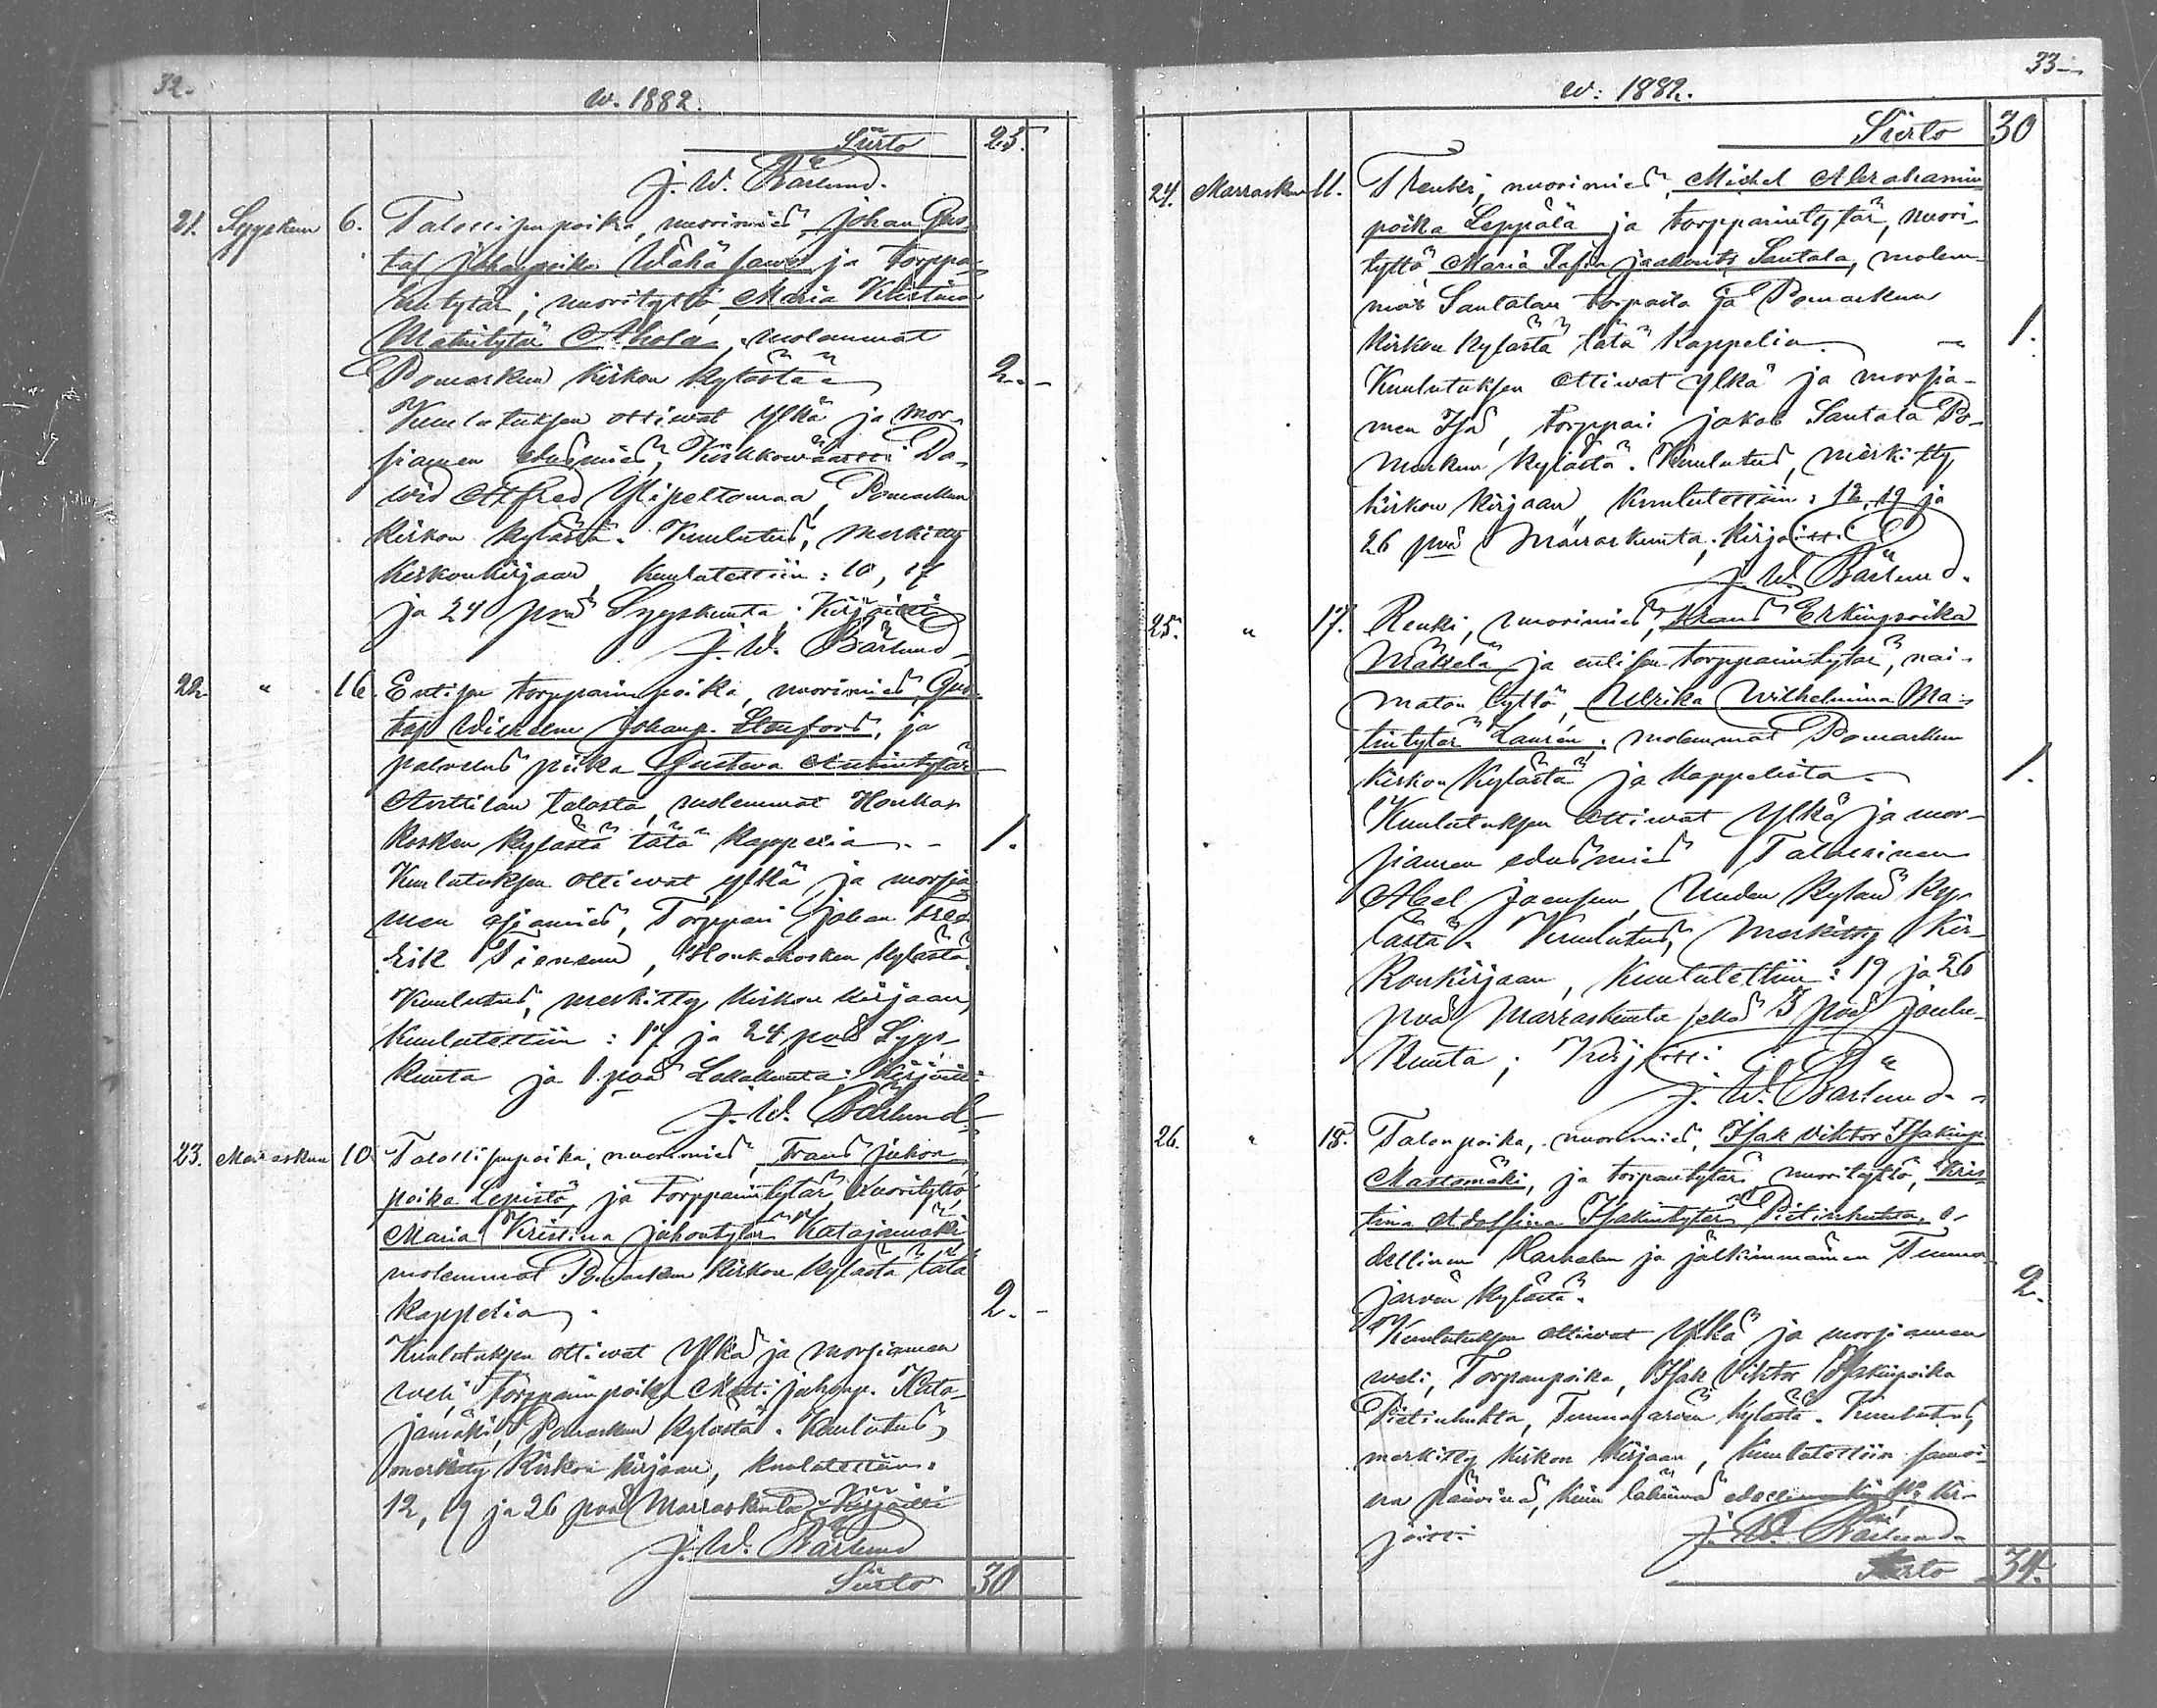 32.
w. 1882.
Siirto 25.
J. W. Bärlund.
21. Syyskuu 6. Talollisenpoika, nuorimies, Johan Gus-
taf Juhanpoika Wähä ja torppa-
rintytär, nuorityttö, Maria Kristina
Matintytär Ahola, molemmat
Pomarkun kirkon kylästä 2. -
Kuulutuksen ottiwat ylkä ja mor-
siamen edusmies, Kirkkowäärtti Da-
wid Alfred Ylipeltomaa, Pomarkun
kirkon kylästä. Kuulutus, merkitty
kirkonkirjaan, kuulutettiin: 10, 17
ja 24 pnä Syyskuuta; Kirjoitti
J. W. Bärlund
22. " 16. Entisen torpparinpoika, nuorimies, Gus-
taf Wilhelm Johanp. Stenfors, ja
palvelus piika Gustava
Anttilan talosta, molemmat Honka-
kosken kylästä tätä kappelia. - 1.
Kuulutuksen ottiwat ylkä ja morsia-
men asiamies, Torppari Johan Fred-
rik, Honkakosken kylästä.
Kuulutus, merkitty kirkon kirjaan,
kuulutettiin: 17 ja 24 pnä Syys-
kuuta ja 1 pnä Lokakuuta; Kirjoitti
J. W. Bärlund
23. Marraskuu 10. Talollisenpoika, nuorimies, Frans Juhon-
poika Lepistö, ja torpparintytär, nuorityttö
Maria Kristina Juhontytär Katajamäki
molemmat Pomarkun kirkon kylästä tätä
kappelia. 2. -
Kuulutuksen ottiwat ylkä ja morsiamen
weli, torpparinpoika Matti Juhonp. Kata-
jamäki, Pomarkun kylästä. Kuulutus,
merkitty kirkon kirjaan, kuulutettiin:
12, 19 ja 26 pnä Marraskuuta; Kirjoitti
J. W. Bärlund
Siirto 30
33
w: 1882.
Siirto 30
24. Marraskuu 11. Renki, nuorimies, Michel Abrahamin-
poika Leppälä ja torpparintytär, nuori-
tyttö, Maria Sofia Jaakont. Santala, molem-
mat Santalan torpasta ja Pomarkun
kirkon kylästä tätä kappelia. 1.
Kuulutuksen ottiwat ylkä ja morsia-
men Isä, torppari Jakob Santala Po-
markun kylästä. Kuulutus, merkitty
kirkon kirjaan kuulutettiin: 12, 19 ja
26 pnä Marraskuuta; Kirjoitti
J. W. Bärlund.
25. " 17. Renki, nuorimies, Frans Erkinpoika
Mäkelä ja entisen torpparintytär, nai-
maton tyttö, Ulrika Wilhelmina Ma-
tintytär Laurén; molemmat Pomarkun
kirkon kylästä ja kappelista 1.
Kuulutuksen ottiwat ylkä ja mor-
siamen edusmies Talollinen
Abel, Uuden kylän ky-
lästä. Kuulutus, merkitty kir-
konkirjaan, kuulutettiin: 19 ja 26
pnä Marraskuuta sekä 3 pnä Joulu-
kuuta; Kirjoitti
J. W. Bärlund.
26. " 18. Talonpoika, nuorimies, Isak Viktor Isakinp.
Mastomäki, ja torpantytär, nuorityttö, Kris-
tina Adolfina Isakintytär Pietinhuhta, e-
dellinen Harhalan ja jälkimmäinen Tuuna-
järwen kylästä. 2.
Kuulutuksen ottiwat ylkä ja morsiamen
weli, Torpanpoika, Isak Viktor Isakinpoika
Pietinhuhta, Tuunajärwen kylästä. Kuulutus,
merkitty kirkon kirjaan, kuulutettiin samoi-
na päiwinä, kuin lähinnä Kir-
joitti J. W. Bärlund
Siirto 34.